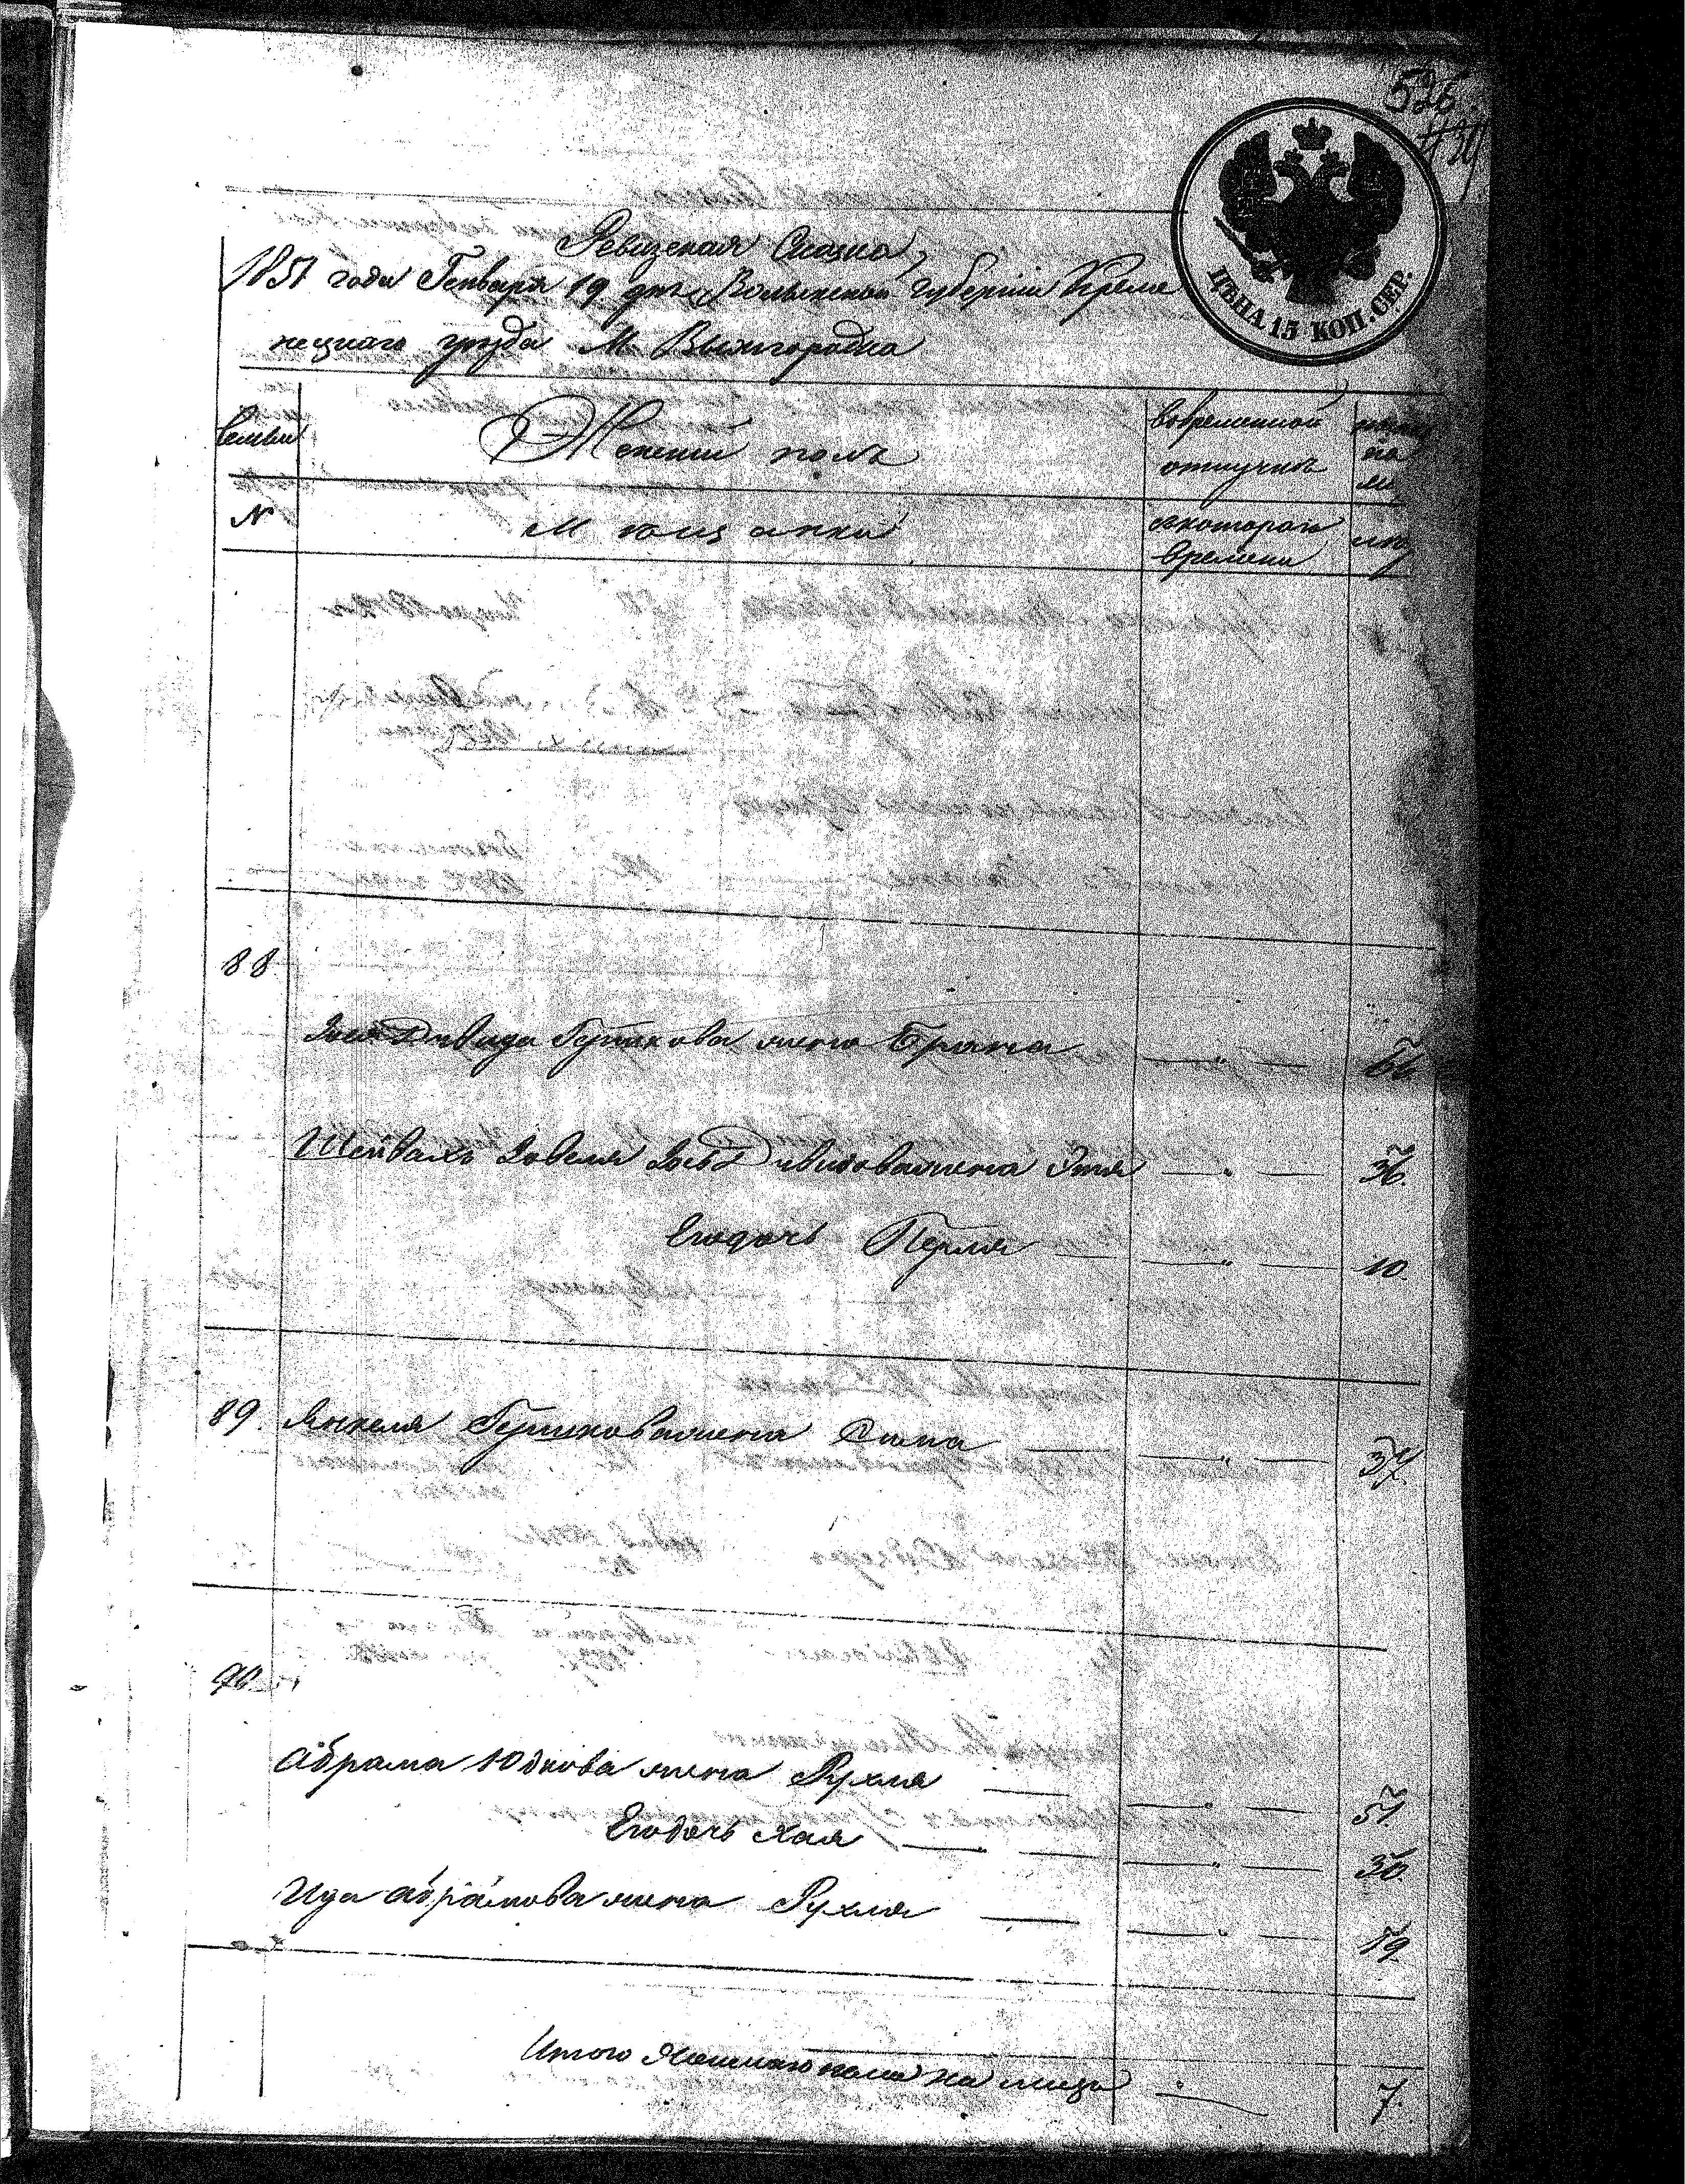 526.
ЦѢНА 15 КОП. СЕР.
Ревизская Сказка,
1851 года Генваря 19 дня Волынской Губерніи Креме
нецкаго уезда М. Вышгородка
Семьи
Женский полъ
вовременной
отлучкѣ
N
Мѣщанки
скотораго
времени
лѣта
88
Давида Гершкова жена Брана — " —
Шейвахъ Зовеля Давидова жена Этя — " — 36.
Егодочь Перля — " — 10.
89. Янкеля Гершкова жена Сима — " — 37.
90
Абрама Юдкова жена Рухля — " — 51
Егодочь Хая — " — 30.
Ица Абрамова жена Рухля — " — 19
Итого Женскаго пола на лицо " 7.